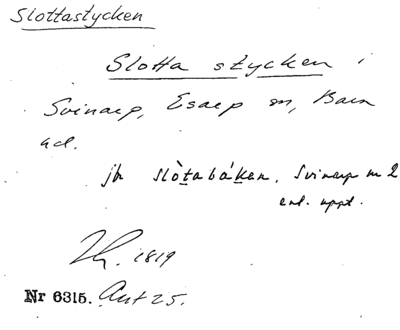 Slottastycken
Slotta stycken i
Svinarp, Esarp sn, Bara
hd.
jfr slòtabáken, Svinarp nr 2
enl. uppt.
1819
Nr 6315. Ant 25.